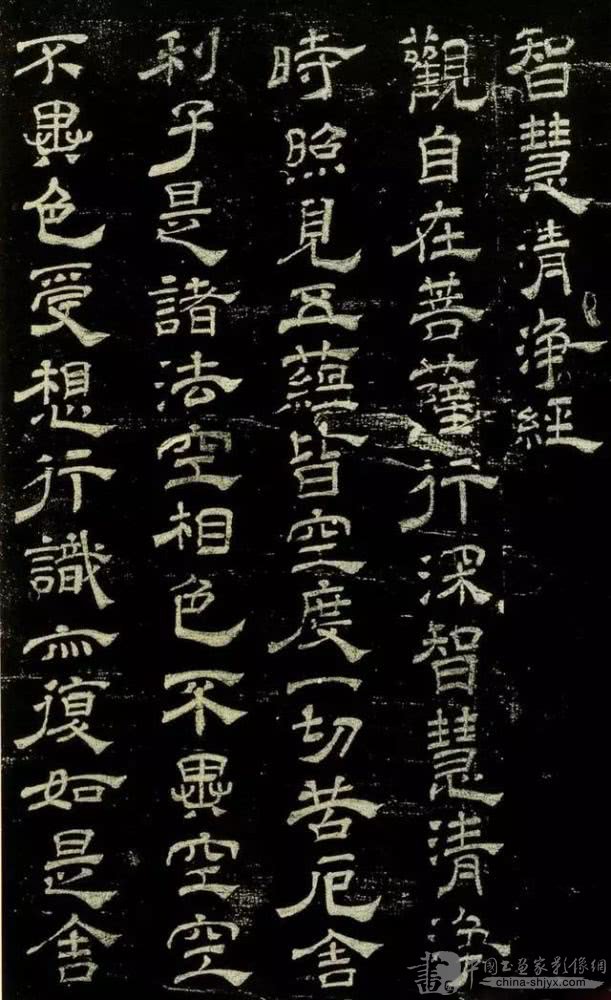 智慧清淨經
觀自在菩薩行深智慧清淨
時照見五蘊皆空度一切苦厄舍
利子是諸法空相色不異空空
不異色受想行識亦復如是舍
中國书画家影像網
china-shjyx.com